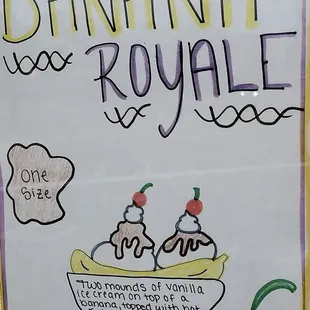 BANANA
ROYALE
One
Size
Two mounds of vanilla
ice cream on top of a
banana, topped with hot